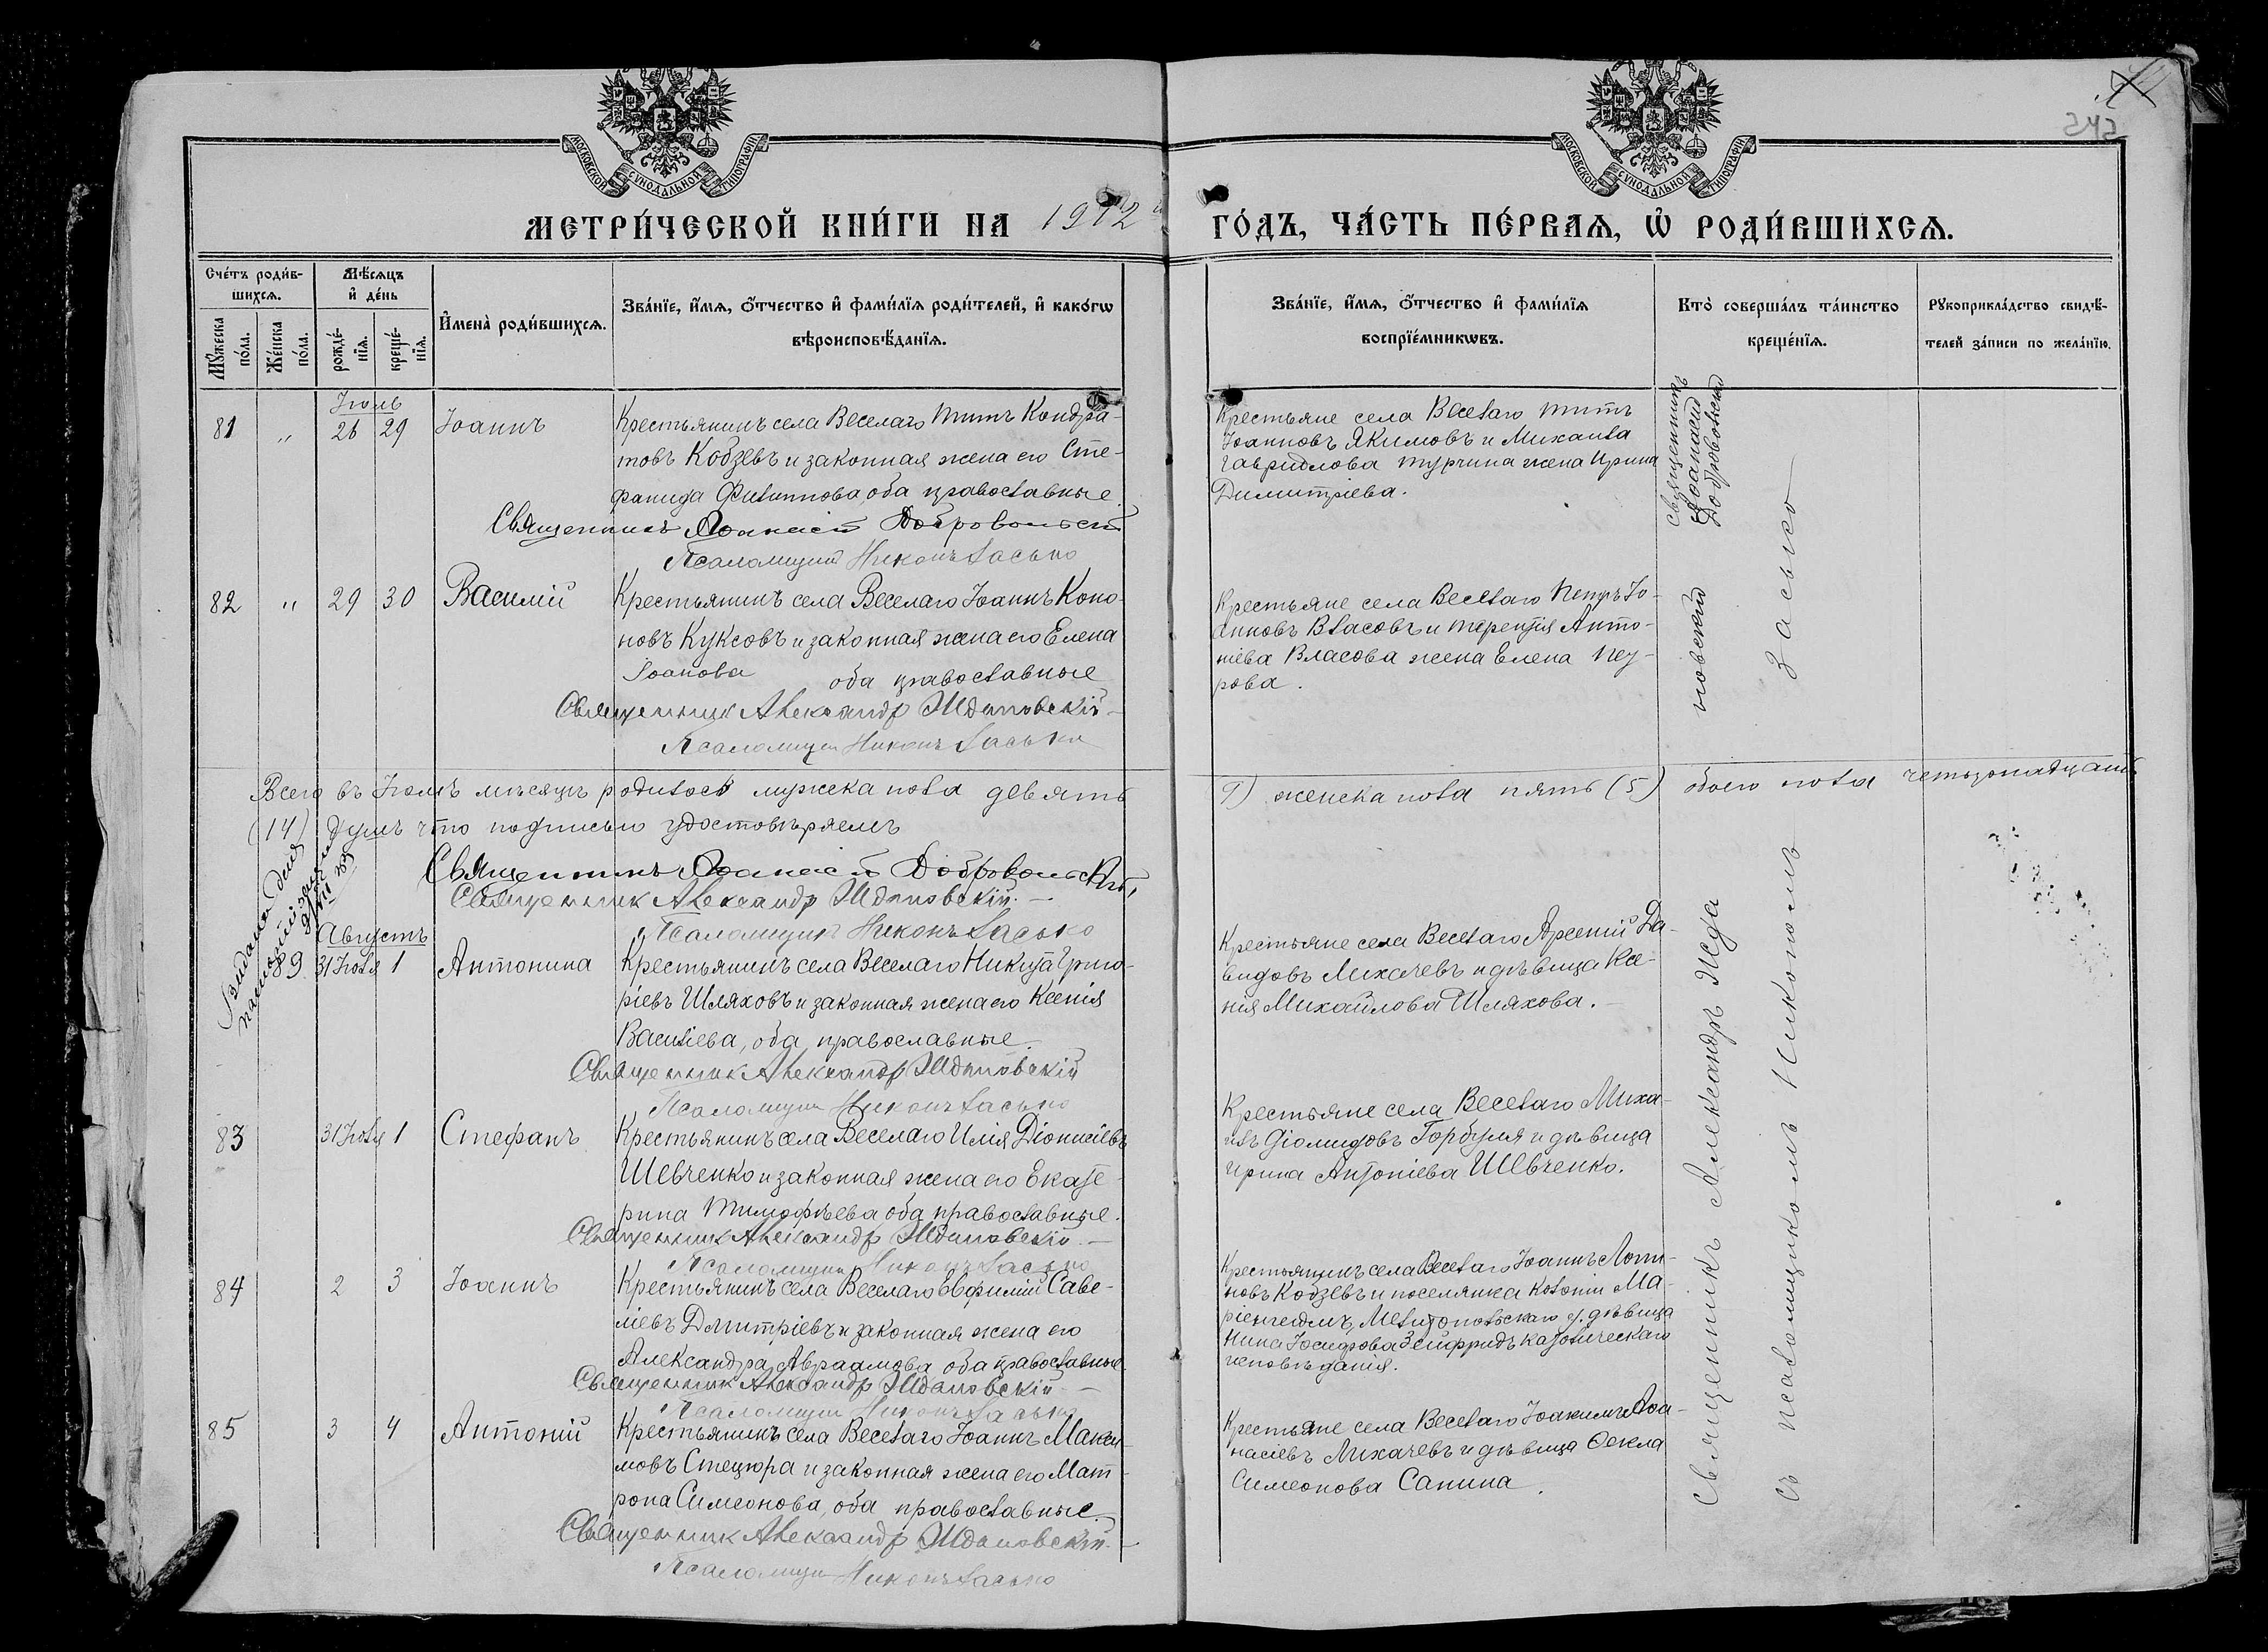 МОСКОВСКОЙ СѴНОДАЛЬНОЙ ТИПОГРАФІИ.
МОСКОВСКОЙ СѴНОДАЛЬНОЙ ТИПОГРАФІИ.
МЕТРИ́ЧЕСКОЙ КНИ́ГИ НА 1912 ГО́ДЪ, ЧА́СТЬ ПЕ́РВАѦ, Ѡ҆ РОДИ́ВШИХСѦ.
Сче́тъ роди́в-
шихсѧ.
Мѣ́сѧцъ
и҆ де́нь
Мꙋ́жеска
по́ла.
Же́нска
по́ла.
рожде́-
нїѧ.
креще́-
нїѧ.
И҆мена̀ роди́вшихсѧ.
Зва́нїе, и҆́мѧ, ѻ҆́тчество и҆ фами́лїѧ роди́телей, и҆ како́гѡ
вѣроисповѣ́данїѧ.
Зва́нїе, и҆́мѧ, ѻ҆́тчество и҆ фами́лїѧ
воспрїе́мникѡвъ.
Кто̀ соверша́лъ та́инство
креще́нїѧ.
Рꙋкоприкла́дство свидѣ́-
телей за́писи по жела́нїю.
Іюль
81 " 26 29 Іоаннъ
Крестьянинъ села Веселаго Титъ Кондра-
товъ Кобзевъ и законная жена его Сте-
фанида Филиппова оба православные
Священникъ Аѳанасій Добровольскій
Псаломщикъ Никонъ Засько
Крестьяне села Веселаго Титъ
Іоанновъ Якимовъ и Михаила
Гавриилова Турчина жена Ирина
Димитріева.
Священникъ
Аѳанасій
Добровольскій
82 " 29 30 Василій
Крестьянинъ села Веселаго Іоаннъ Коно-
новъ Куксовъ и законная жена его Елена
Іоанова оба православные
Священникъ Александръ Ждановскій
Псаломщикъ Никонъ Засько
Крестьяне села Веселаго Петръ Іо-
анновъ Власовъ и Терентія Анто-
ніева Власова жена Елена
Всего въ Іюлѣ мѣсяцѣ родилось мужска пола девять
9) женска пола пять (5) обоего пола четырнадцать
(14) душъ что подписью удостовѣряемъ
Священникъ Аѳанасій Добровольскій
Священникъ Александръ Ждановскій.
Псаломщикъ Никонъ Засько
Августъ
9 31 Іюля 1 Антонина
Крестьянинъ села Веселаго Никита Григо-
ріевъ Шляховъ и законная жена его Ксенія
Василіева, оба православные.
Священникъ Александръ Ждановскій
Псаломщикъ Никонъ Засько
Крестьяне села Веселаго Арсеній Да-
видовъ Лихачевъ и дѣвица Ксе-
нія Михайлова Шляхова.
83 31 Іюля 1 Стефанъ
Крестьянинъ села Веселаго Илія Діонисіевъ
Шевченко и законная жена его Екате-
рина Тимофѣева оба православные.
Священникъ Александръ Ждановскій
Псаломщикъ Никонъ Засько
Крестьяне села Веселаго Миха-
илъ Діомидовъ Горбуля и дѣвица
Ирина Антоніева Шевченко.
84 2 3 Іоаннъ
Крестьянинъ села Веселаго Евфимій Саве-
ліевъ Дмитріевъ и законная жена его
Александра Авраамова оба православные
Священникъ Александръ Ждановскій
Псаломщикъ Никонъ Засько
Крестьянинъ села Веселаго Іоаннъ
новъ Кобзевъ и поселянка колоніи Ма-
ріенгеймъ, Мелитопольскаго у. дѣвица
Нина Іосифова Зейфридъ католическаго
исповѣданія.
85 3 4 Антоній
Крестьянинъ села Веселаго Іоаннъ Макси-
мовъ Стецюра и законная жена его Мат-
рона Симеонова, оба православные.
Священникъ Александръ Ждановскій.
Псаломщикъ Никонъ Засько
Крестьяне села Веселаго Іоакимъ Аѳа-
насіевъ Лихачевъ и дѣвица Ѳекла
Симеонова Санина.
Священникъ Александръ Ждановскій
съ псаломщикомъ Никономъ Засько